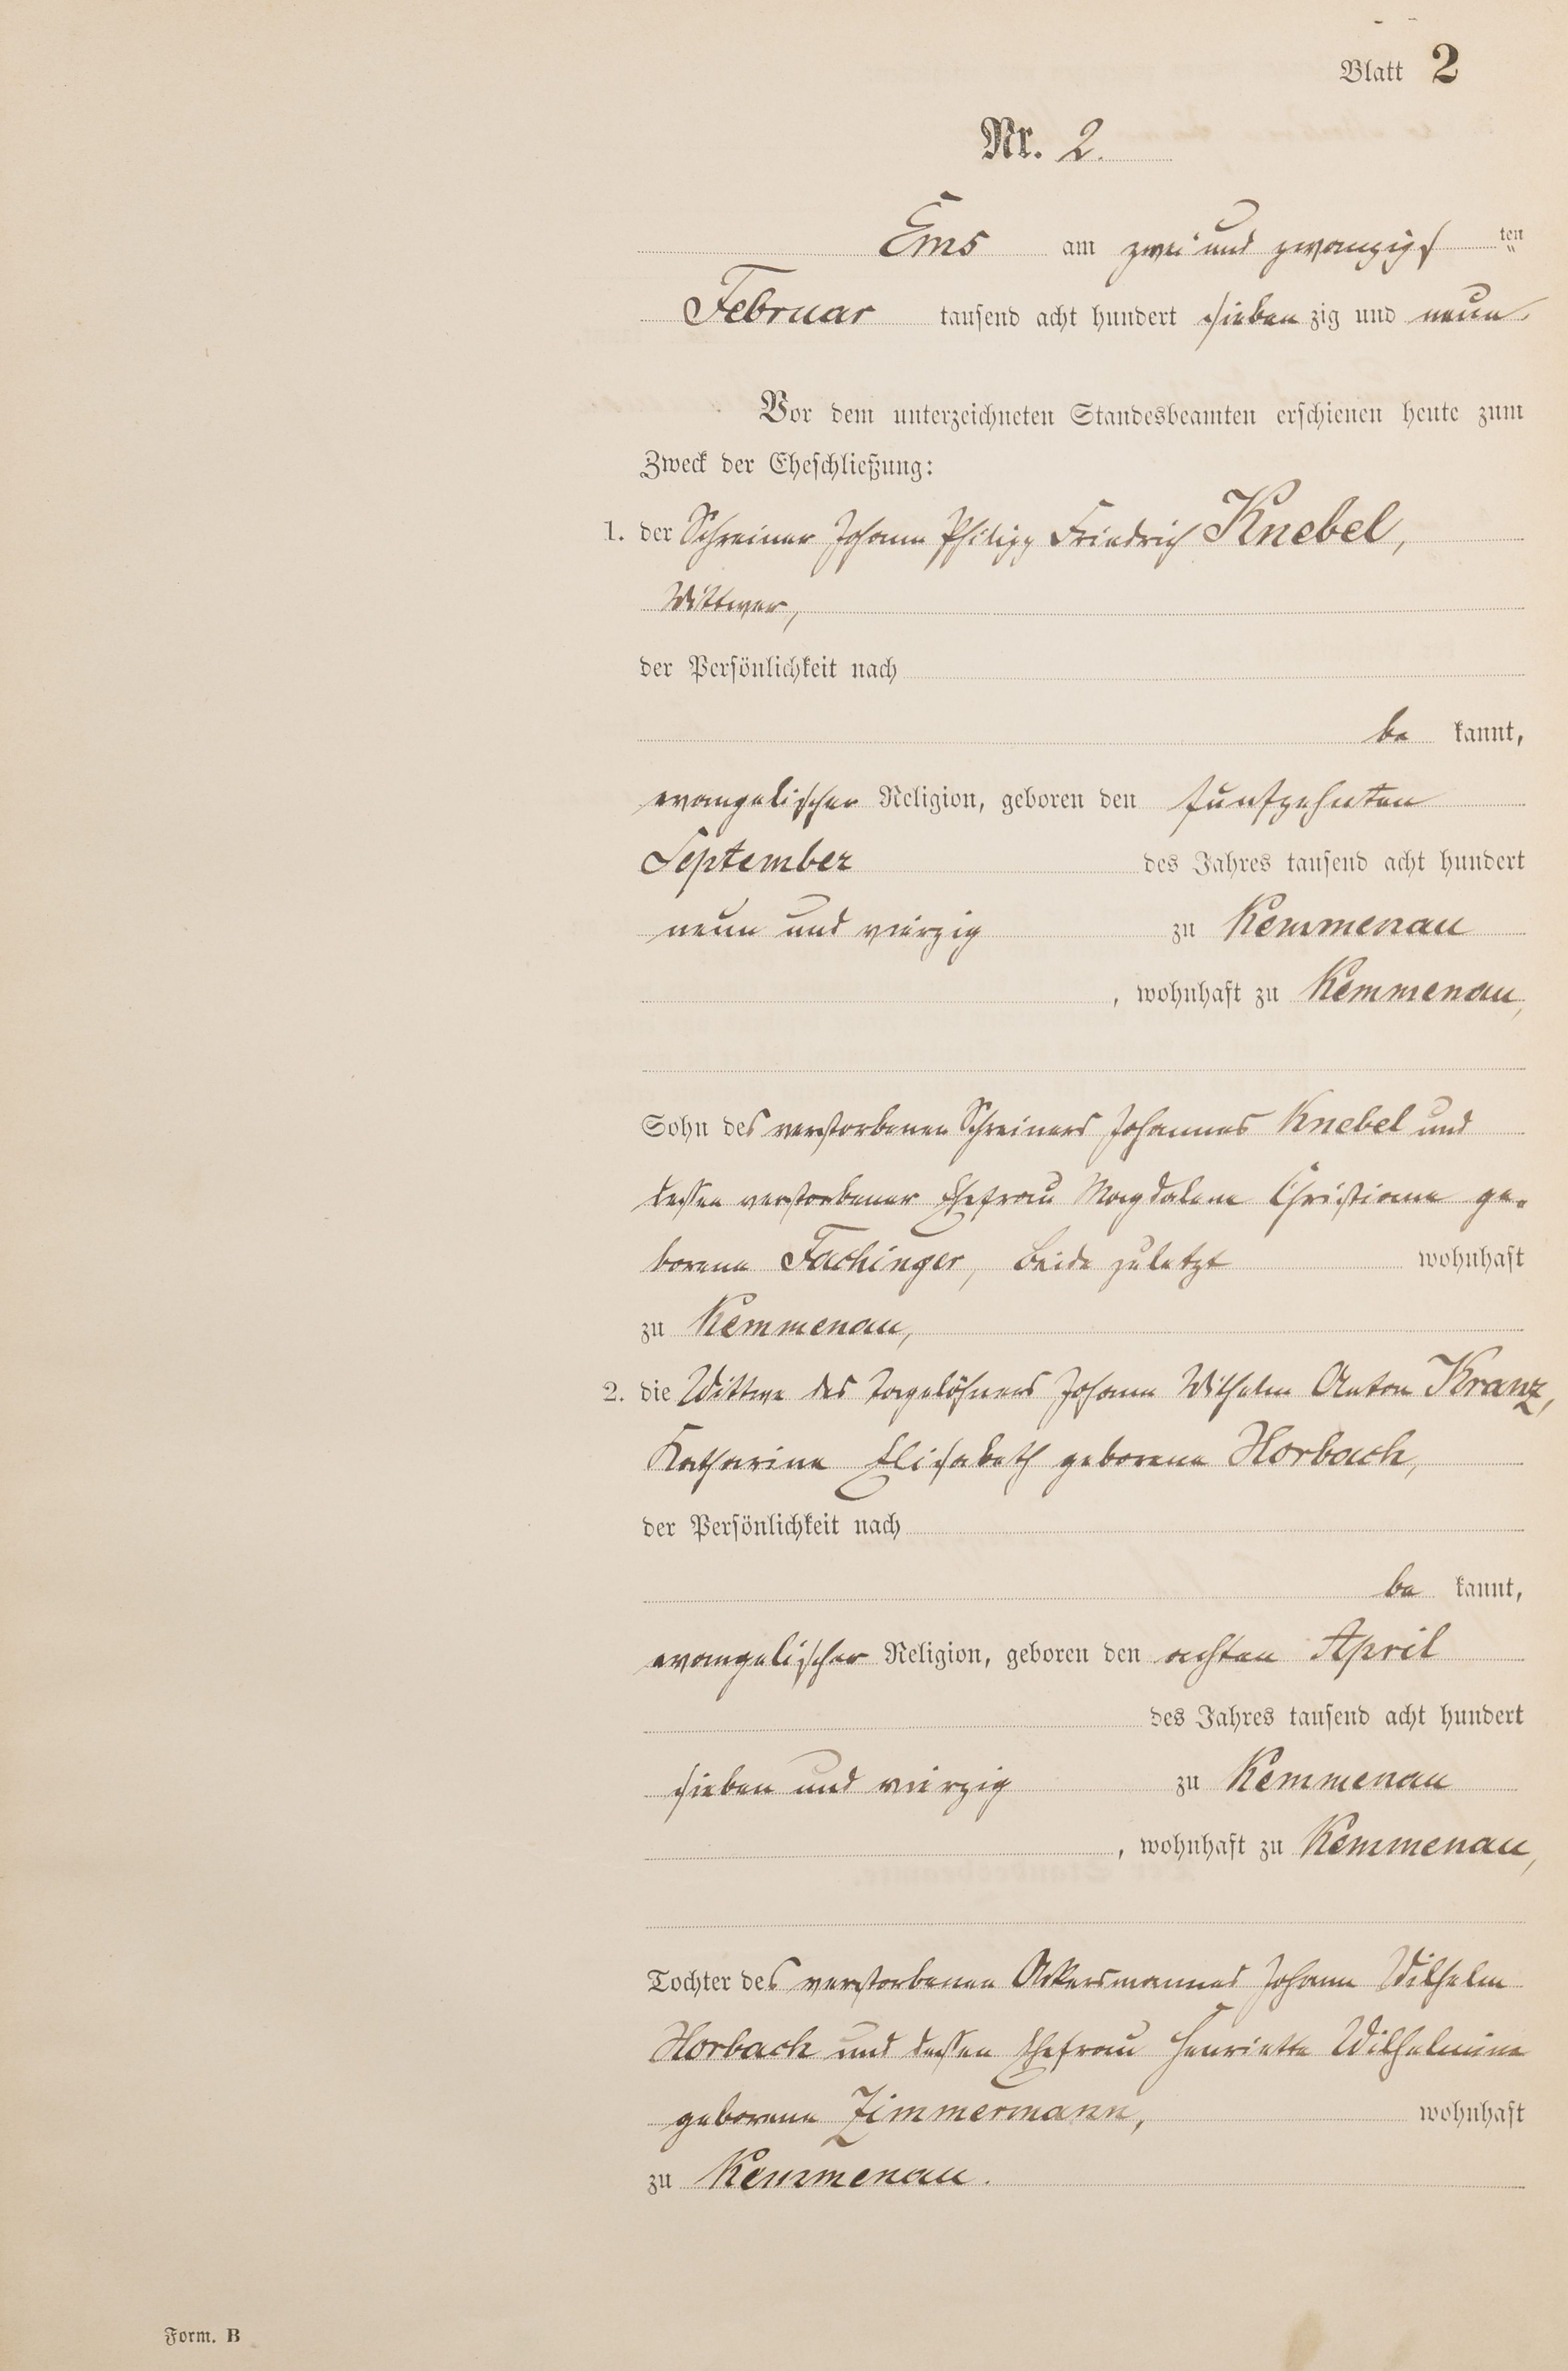 Blatt 2
Nr. 2.
Ems am zwei und zwanzigs ten
Februar tausend acht hundert siebenzig und neun.
Vor dem unterzeichneten Standesbeamten erschienen heute zum
Zweck der Eheschließung:
1. der Schreiner Johann Philipp Friedrich Knebel,
Wittwer,
der Persönlichkeit nach
be kannt,
evangelischer Religion, geboren den fünfzehnten
September des Jahres tausend acht hundert
neun und vierzig zu Kemmenau
, wohnhaft zu Kemmenau,
Sohn des verstorbenen Schreiners Johannes Knebel und
dessen verstorbener Ehefrau Magdalene Christiane ge-
borene Fachinger, beide zuletzt wohnhaft
zu Kemmenau,
2. die Wittwe des Tagelöhners Johann Wilhelm Anton Kranz,
Katharine Elisabeth geborene Horbach,
der Persönlichkeit nach
be kannt,
evangelischer Religion, geboren den achten April
des Jahres tausend acht hundert
sieben und vierzig zu Kemmenau
, wohnhaft zu Kemmenau,
Tochter des verstorbenen Ackersmannes Johann Wilhelm
Horbach und dessen Ehefrau Henriette Wilhelmine
geborene Zimmermann, wohnhaft
zu Kemmenau.
Form. B